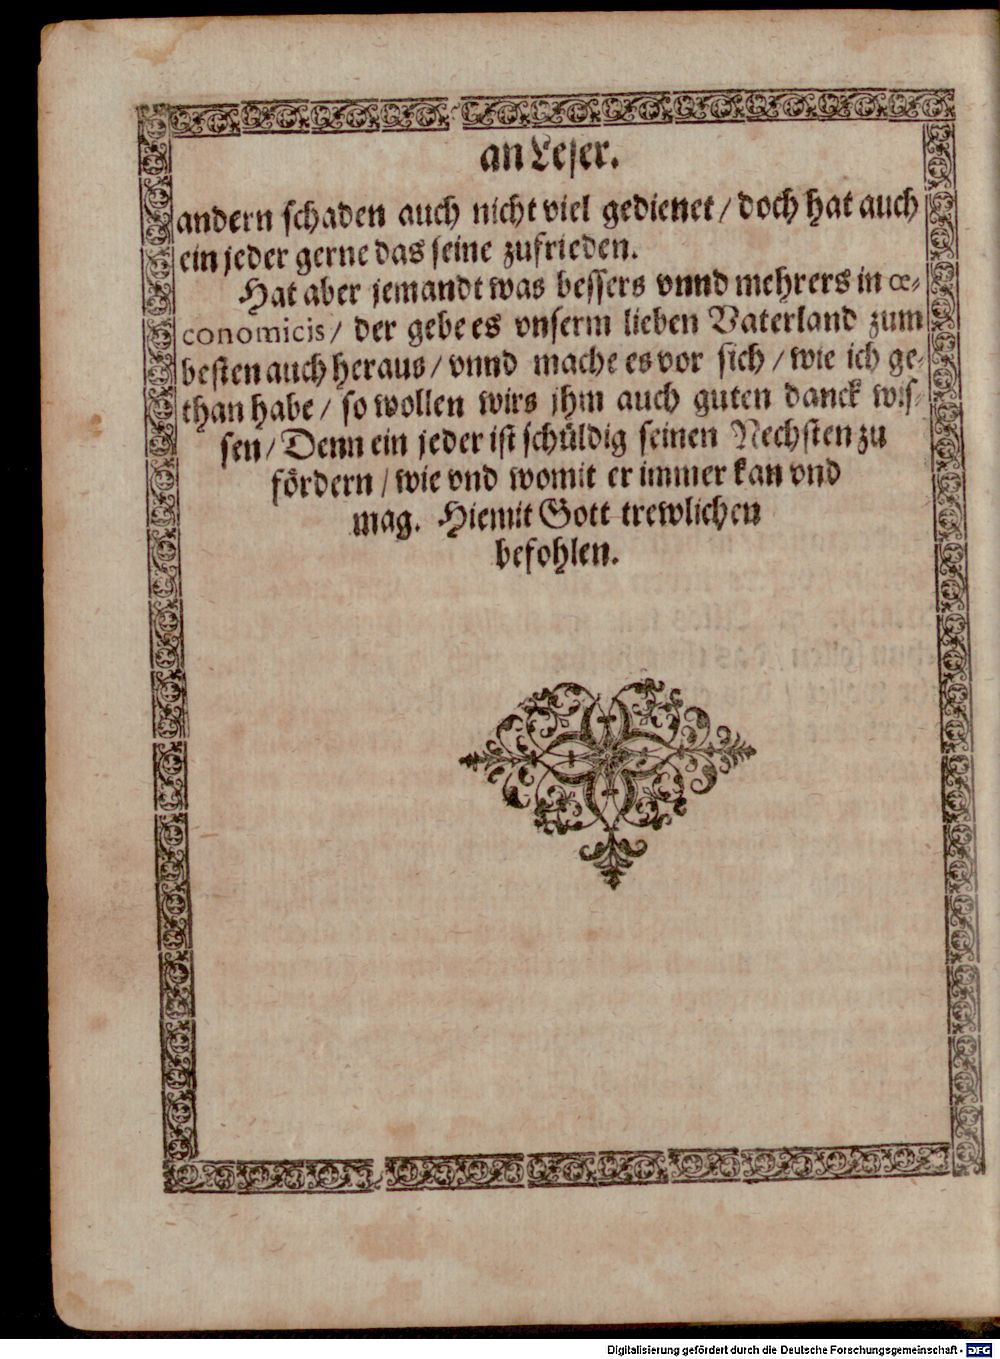 an Leser.
andern schaden auch nicht viel gedienet / doch hat auch
ein jeder gerne das seine zufrieden.
Hat aber jemandt was bessers vnnd mehrers in œ-
conomicis / der gebe es vnserm lieben Vaterland zum
besten auch heraus / vnnd mache es vor sich / wie ich ge-
than habe / so wollen wirs jhm auch guten danck wis-
sen / Denn ein jeder ist schüldig seinen Nechsten zu
fördern / wie vnd womit er immer kan vnd
mag. Hiemit Gott trewlichen
befohlen.
Digitalisierung gefördert durch die Deutsche Forschungsgemeinschaft - DFG